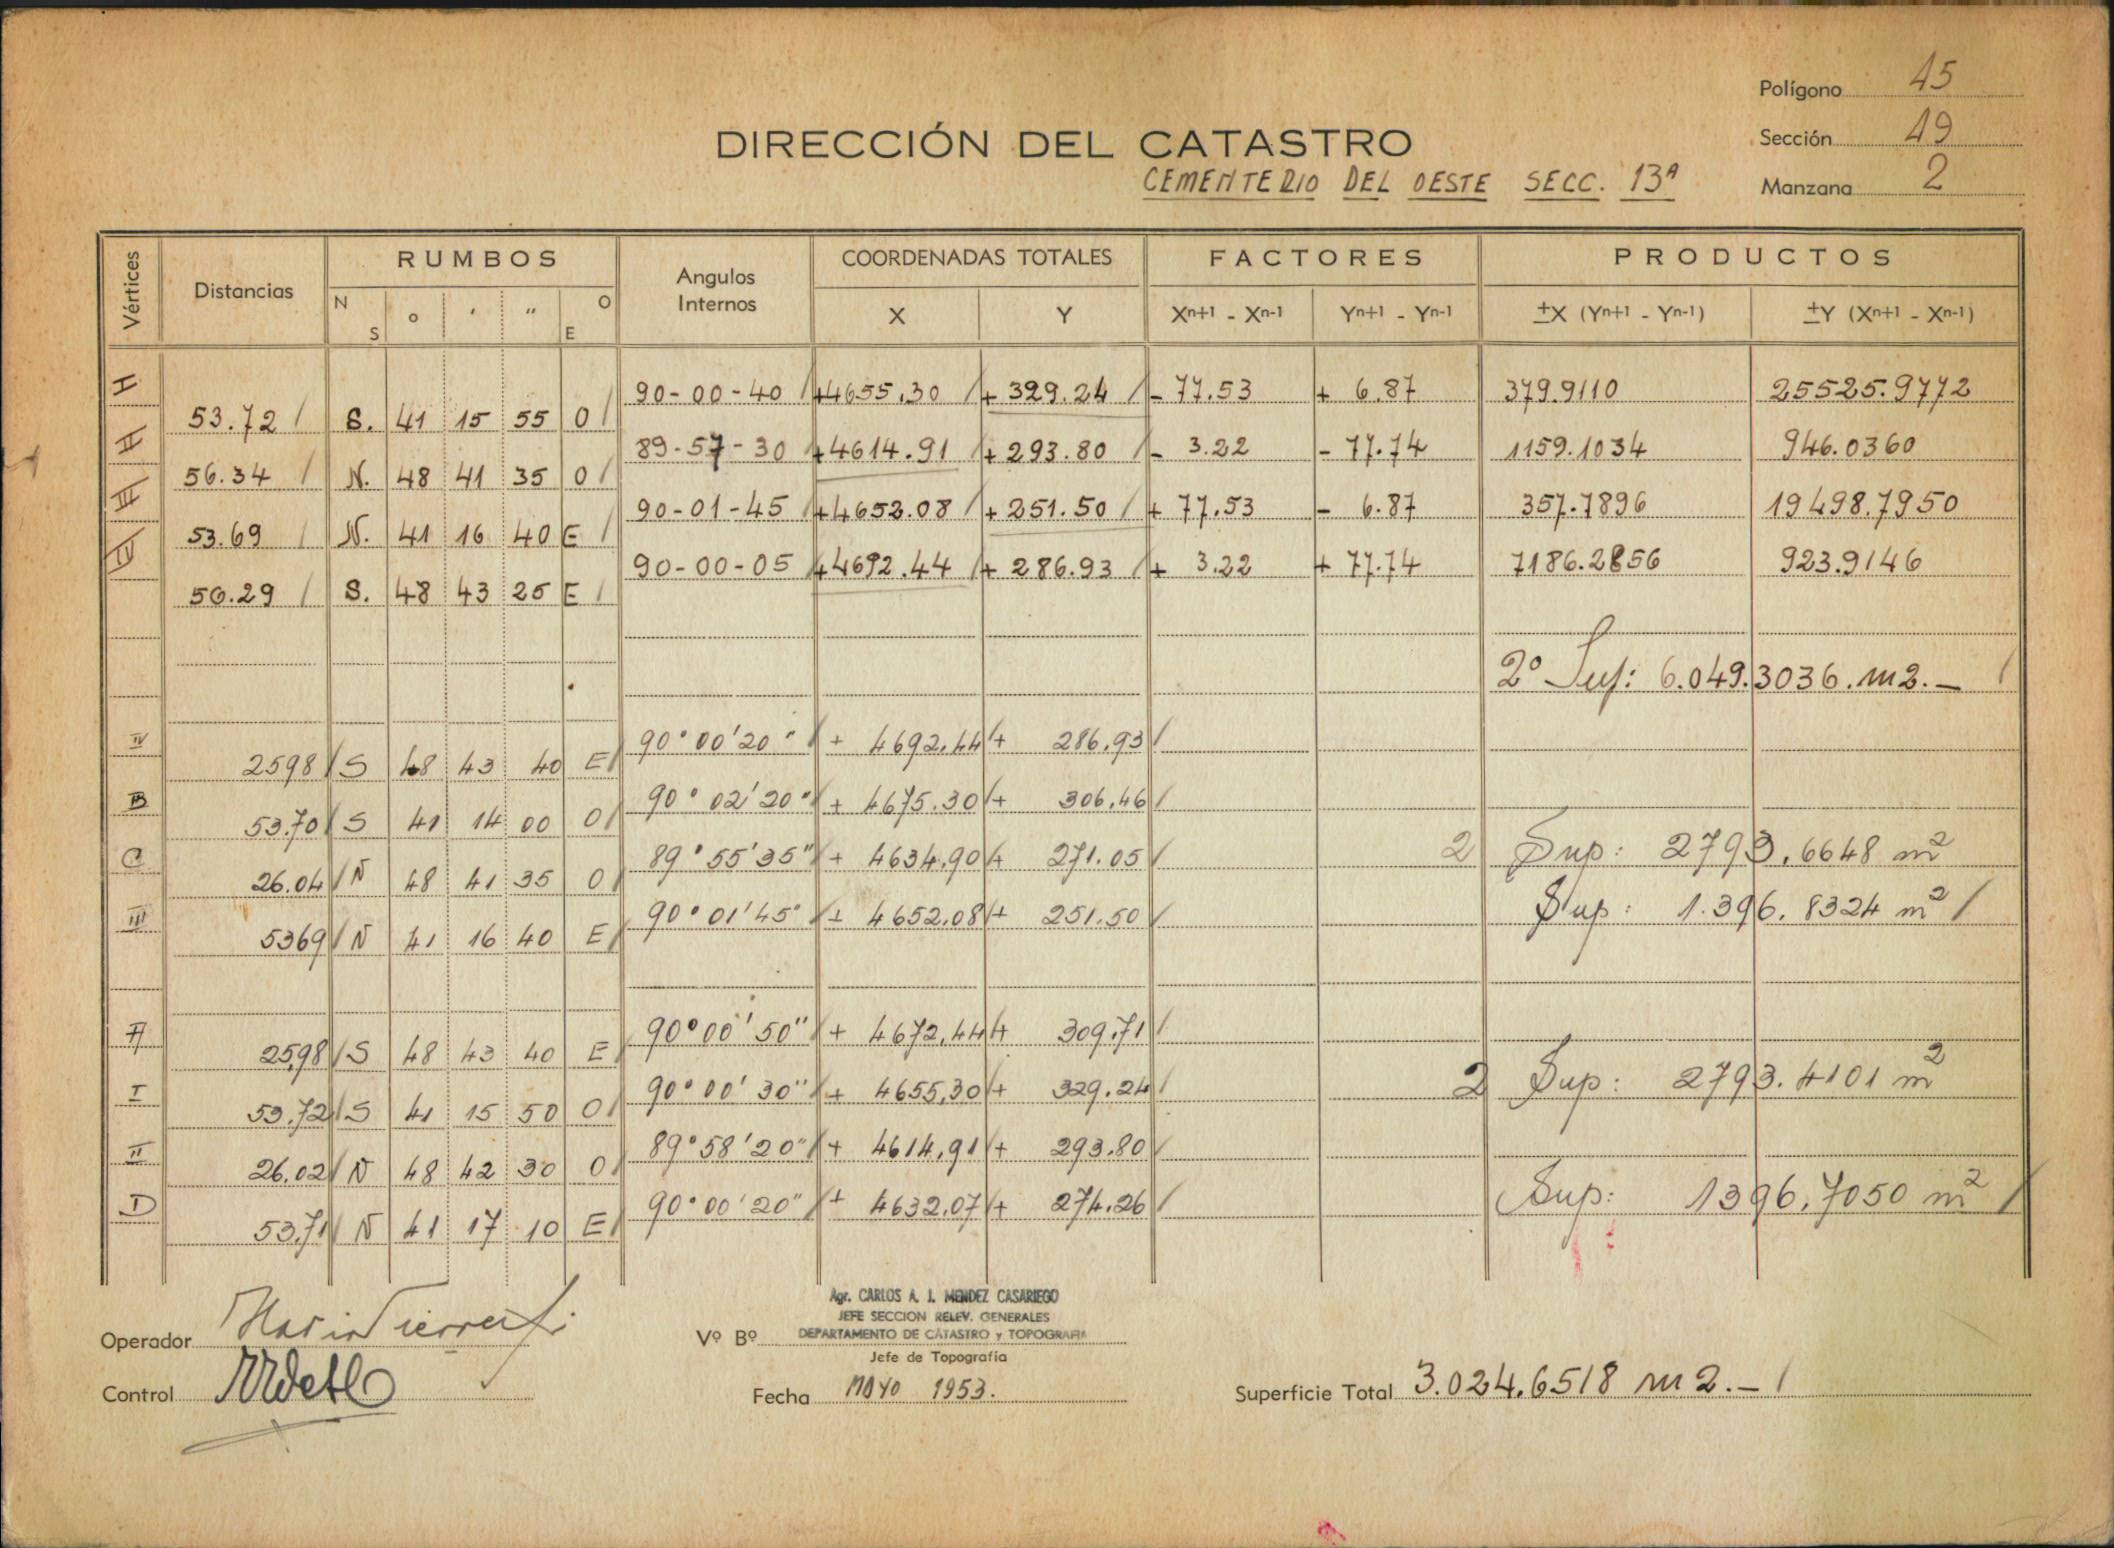 Polígono 45
DIRECCIÓN DEL CATASTRO
Sección 49
CEMENTERIO DEL OESTE SECC. 13ª
Manzana 2
Vértices Distancias RUMBOS Angulos Internos COORDENADAS TOTALES FACTORES PRODUCTOS
N S ° ' " O E X Y Xⁿ⁺¹ - Xⁿ⁻¹ Yⁿ⁺¹ - Yⁿ⁻¹ ±X (Yⁿ⁺¹ - Yⁿ⁻¹) ±Y (Xⁿ⁺¹ - Xⁿ⁻¹)
I 90-00-40 +4655.30 + 329.24 - 77.53 + 6.87 379.9110 25525.9772
53.72 S. 41 15 55 O
II 89-57-30 +4614.91 +293.80 - 3.22 - 77.74 1159.1034 946.0360
56.34 N. 48 41 35 O
III 90-01-45 +4652.08 +251.50 + 77.53 - 6.87 357.7896 19498.7950
53.69 N. 41 16 40 E
IV 90-00-05 +4692.44 + 286.93 + 3.22 + 77.74 7186.2856 923.9146
56.29 S. 48 43 25 E
2º Sup: 6.049.3036.m2.-
IV 90°00'20" + 4692,44 + 286,93
2598 S 48 43 40 E
B 90°02'20" + 4675.30 + 306,46
53.70 S 41 14 00 O
C 89°55'35" + 4634,90 + 271.05 2 Sup: 2793,6648 m²
26.04 N 48 41 35 O
III 90°01'45" + 4652,08 + 251.50 Sup: 1.396,8324 m²
5369 N 41 16 40 E
A 90°00'50" + 4672,44 + 309,71
25,98 S 48 43 40 E
I 90°00'30" + 4655,30 + 329.24 2 Sup: 2793.4101 m²
53.72 S 41 15 50 O
II 89°58'20" + 4614,91 + 293.80
26.02 N 48 42 30 O
D 90°00'20" + 4632,07 + 274.26 Sup: 1396,7050 m²
53,71 N 41 17 10 E
Agr. CARLOS A. J. MENDEZ CASARIEGO
JEFE SECCION RELEV. GENERALES
Operador Vº Bº DEPARTAMENTO DE CATASTRO y TOPOGRAFIA
Jefe de Topografía
Control Fecha MAYO 1953. Superficie Total 3.024.6518 m2.-